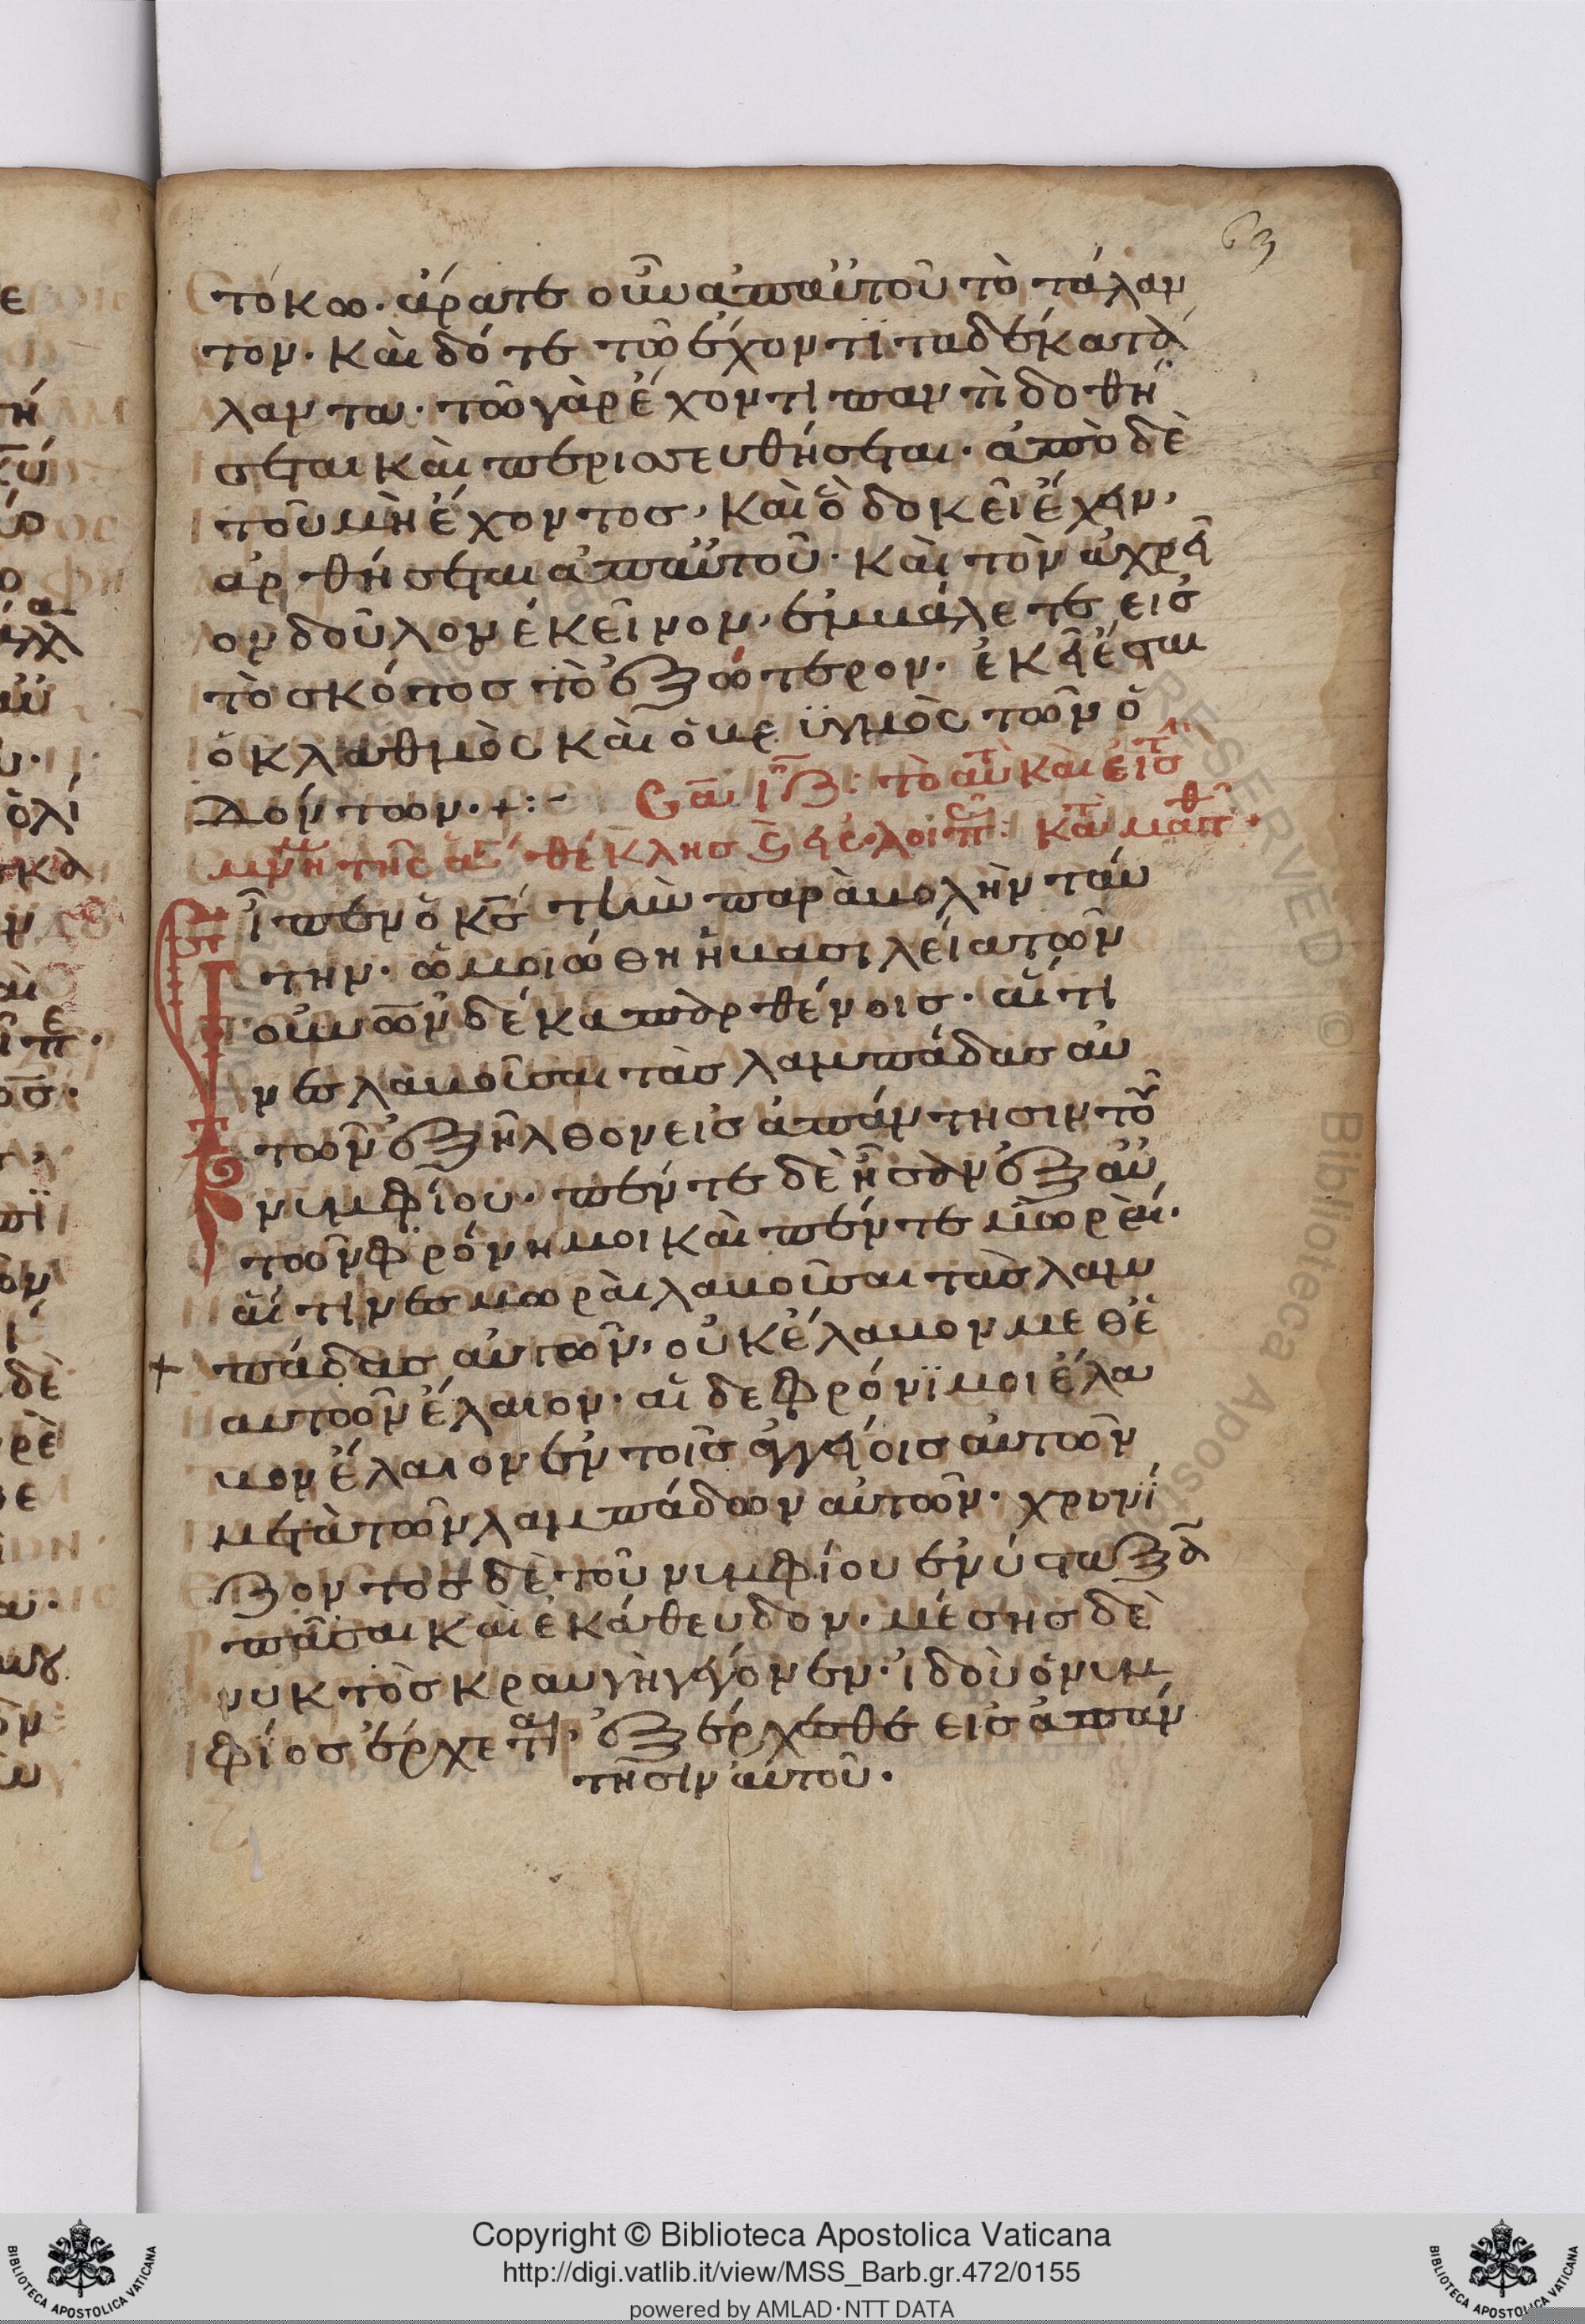 63
τόκω. ἄρατε οὖν ἀπαὐτοῦ τὸ τάλαν
τον. καὶ δότε τῶ ἔχοντι τα δέκα τά
λαντα. τῶ γὰρ ἔχοντι παντὶ δοθή
σεται καὶ περισσευθήσεται. ἀπὸ δὲ
τοῦ μὴ ἔχοντος, καὶ ὃ δοκεῖ ἔχειν,
αρθήσεται ἀπαὐτοῦ. καὶ τὸν ἀχρεῖ
ον δοῦλον ἐκεῖνον, ἐμβάλετε εἰσ
τὸ σκότος τὸ ἐξώτερον. ἐκεῖ ἔσται
ὁ κλαυθμὸς καὶ ὁ βρϋγμὸς τῶν ὀ
δόντων. +:-
θέκλησ
εἶπεν ὁ κσ τὴν παραβολὴν ταύ
την. ὡμοιώθη ἡ βασιλεία τῶν
οὐνῶν δέκα παρθένοισ. αἵτι
νεσ λαβοῦσαι τὰσ λαμπάδασ αὐ
τῶν ἐξῆλθον εἰσ ἀπάντησιν τοῦ
νυμφίου. πέντε δὲ ἦσαν ἐξ αὐ
τῶν φρόνημοι καὶ πέντε μωραί.
αἵτινεσ μωραὶ λαβοῦσαι τὰσ λαμ
πάδασ αὐτῶν, οὐκ ἔλαβον μεθἑ
αυτῶν ἔλαιον. αἱ δε φρόνϊμοι ἔλα
βον ἔλαιον ἐν τοῖσ ἀγγείοισ αὐτῶν
μετὰ τῶν λαμπάδων αὐτῶν. χρονί
ζοντοσ δὲ τοῦ νυμφίου ἐνύσταξα
πᾶσαι καὶ ἐκάθευδον. μέσησ δὲ
νυκτὸσ κραυγὴ γέγονεν. ἰδοὺ ὁ νυμ
φίοσ ἔρχεται, ἐξέρχεσθε εἰσ ἀπάν
τησιν αὐτοῦ.
Copyright © Biblioteca Apostolica Vaticana
http://digi.vatlib.it/view/MSS_Barb.gr.472/0155
powered by AMLAD·NTT DATA